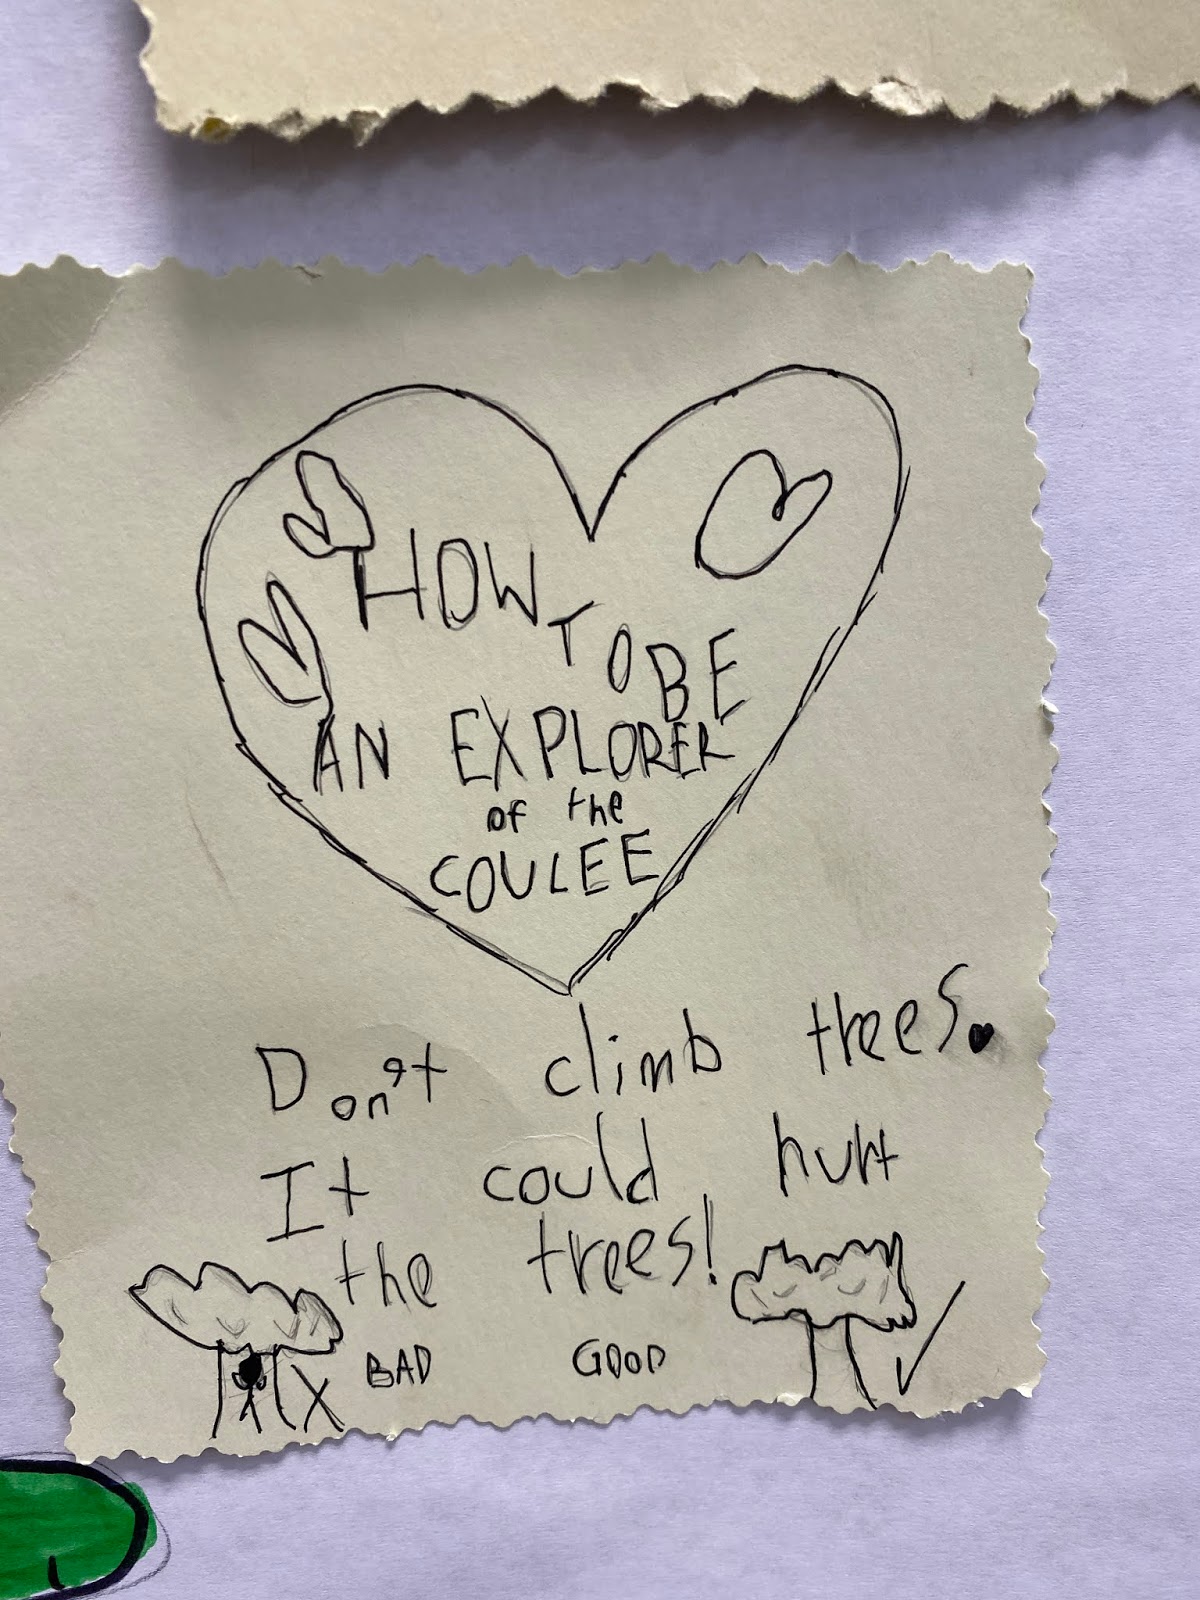 HOW TO BE
AN EXPLORER
of the
COULEE
Don't climb trees.
It could hurt
the trees!
X BAD GOOD ✓